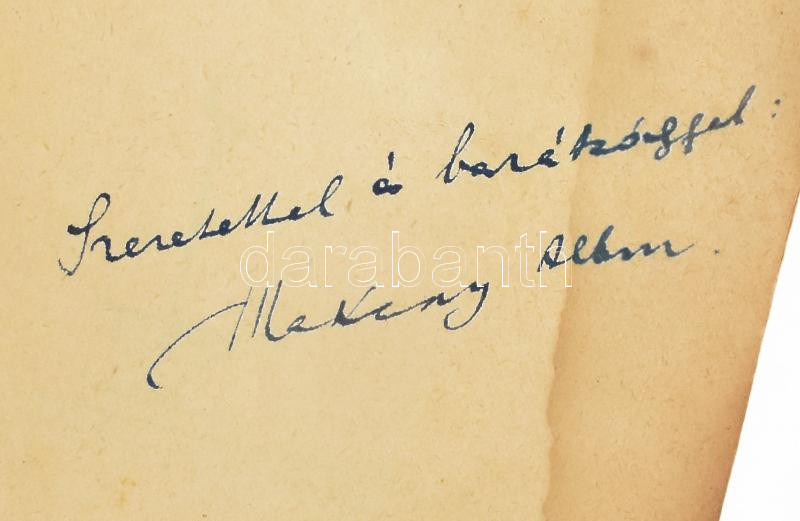 Szeretettel és barátsággal:
darabanth
Makay Albin.